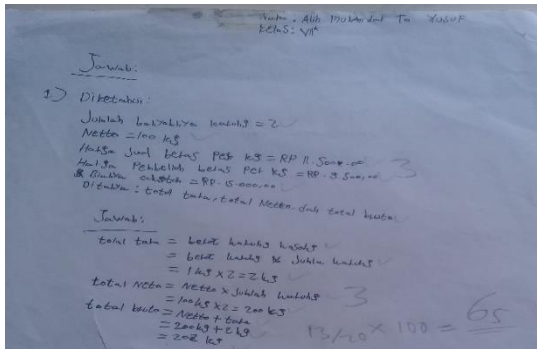 Nama : Alih Mubandat Ta Yusuf
Kelas : VII^A
Jawab:
1) Diketahui:
Jumlah banyaknya karung = 2
Netto = 100 kg
Harga jual beras per kg = RP 11.500.00
Harga Pembelian beras Per kg = RP. 9.500.00
& Biaya = RP. 15.000.00
Ditanya : total tara, total Netto dan total bruto.
3
Jawab:
total tara = berat karung kosong
= berat karung x Jumla karung
= 1 kg x 2 = 2 kg
total Netto = Netto x Jumlah karung
= 100 kg x 2 = 200 kg
3
total bruto = Netto + tara
= 200 kg + 2 kg
= 202 kg
13/20 x 100 = 65